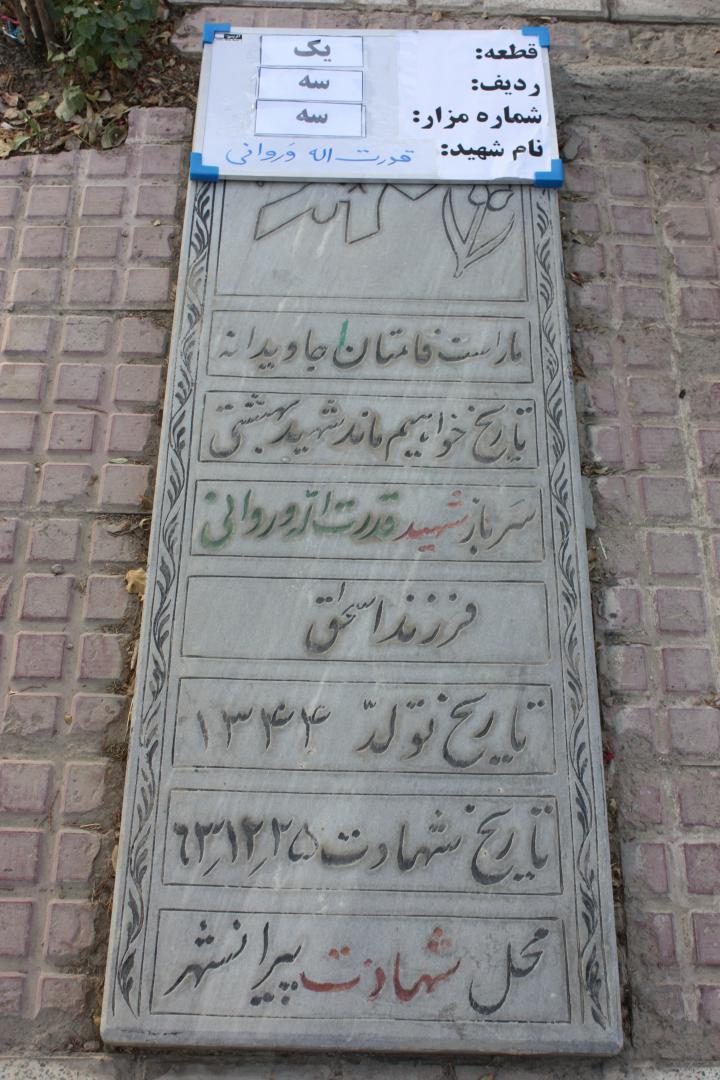 قطعه: یک
ردیف: سه
شماره مزار: سه
نام شهید: قدرت اله وَروانی
ماراست قامتان جاویدانه
تاریخ خواهیم ماند شهید بهشتی
سرباز شهید قدرت اله وروانی
فرزند اسحاق
تاریخ تولدّ ۱۳۴۴
تاریخ شهادت ۶۳٫۱۲٫۲۵
محل شهادت پیرانشهر